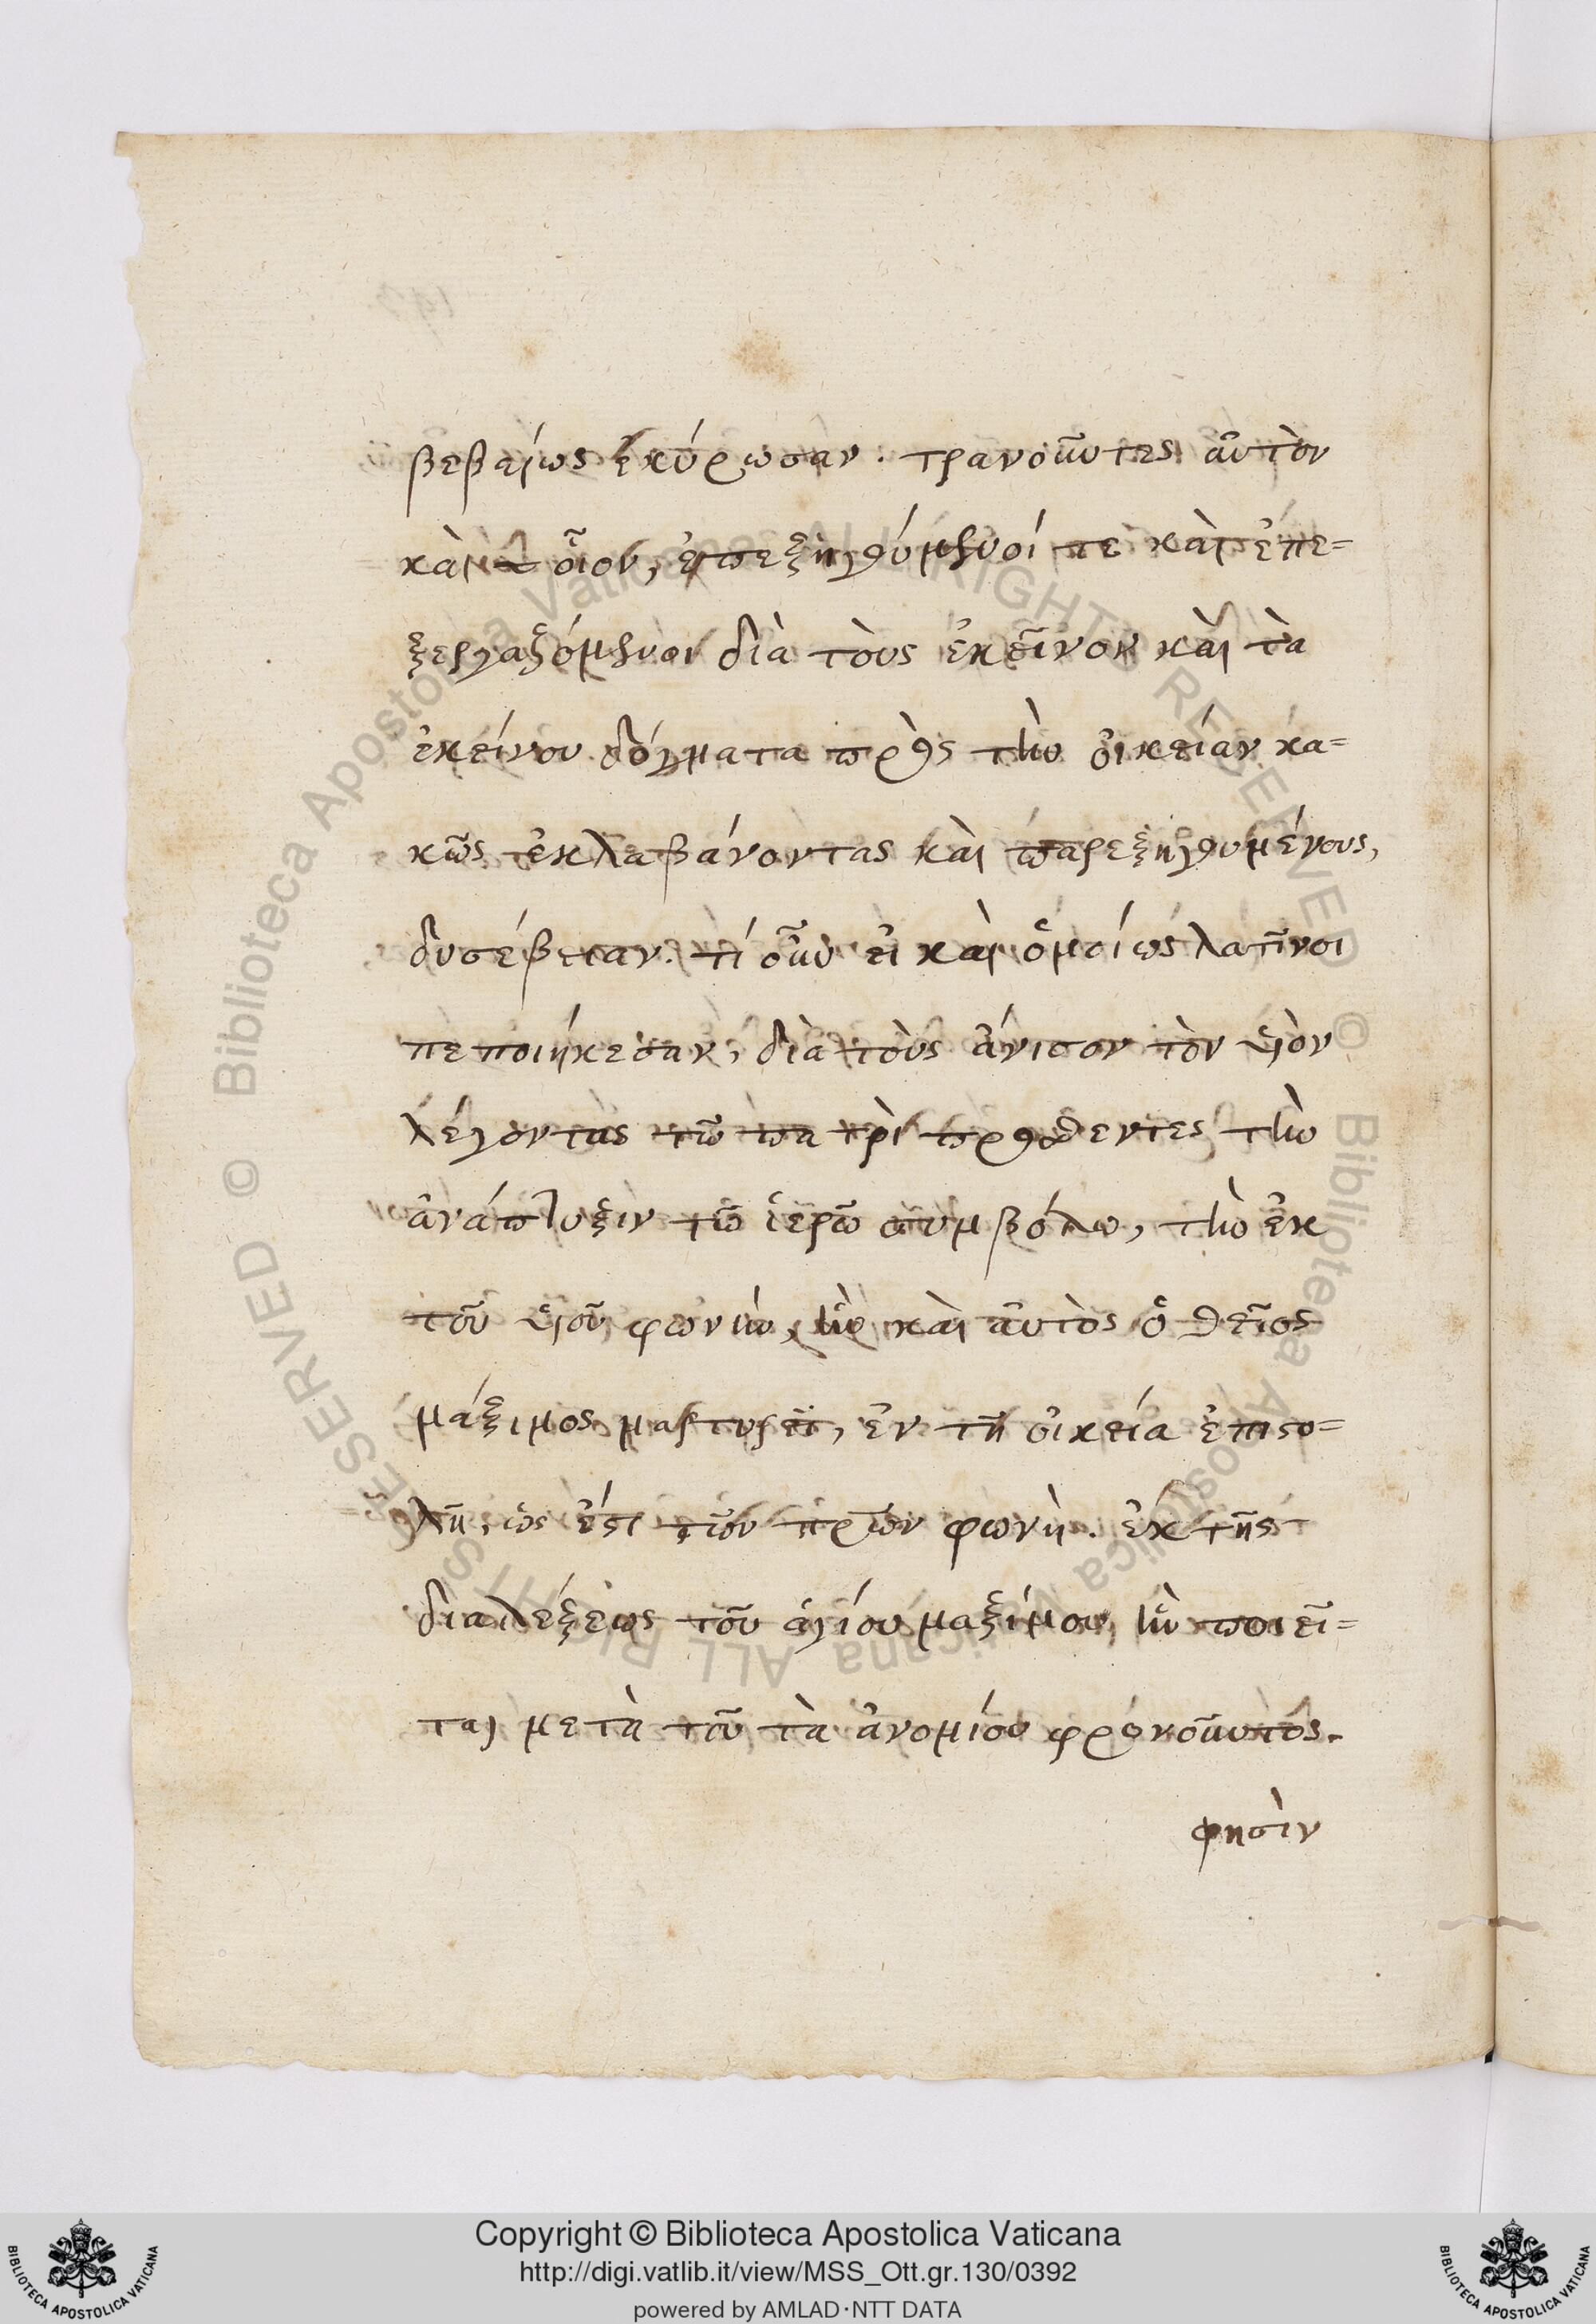 βεβαίως ἐκύρωσαν. τρανοῦντες αὐτὸν
καὶ οἷον, ἐπεξηγούμενοί τε καὶ ἐπε=
ξεργαζόμενοι διὰ τοὺς ἐκεῖνον καὶ τὰ
ἐκείνου δόγματα πρὸς τὴν οἰκείαν κα=
κῶς ἐκλαβάνοντας καὶ παρεξηγουμένους,
δυσέβειαν. τί οὖν εἰ καὶ ὁμοίως λατῖνοι
πεποιήκεσαν, διὰ τοὺς ἄνισον τὸν υἱὸν
λέγοντας τῶ πατρὶ προσθέντες τὴν
ἀνάπτυξιν τῶ ἱερῶ συμβόλω, τὴν ἐκ
τοῦ υἱοῦ φωνὴν, ἣν καὶ αὐτὸς ὁ θεῖος
μάξιμος μαρτυρεῖ, ἐν τῆ οἰκεία ἐπιστο=
λῆ, ὡς ἔστι τῶν πρῶν φωνὴ. ἐκ τῆς
διαλέξεως τοῦ ἁγίου μαξίμου, ἣν ποιεῖ=
ται μετὰ τοῦ τὰ ἀνομίου φρονοῦντος.
φησὶν
Copyright © Biblioteca Apostolica Vaticana
http://digi.vatlib.it/view/MSS_Ott.gr.130/0392
powered by AMLAD·NTT DATA